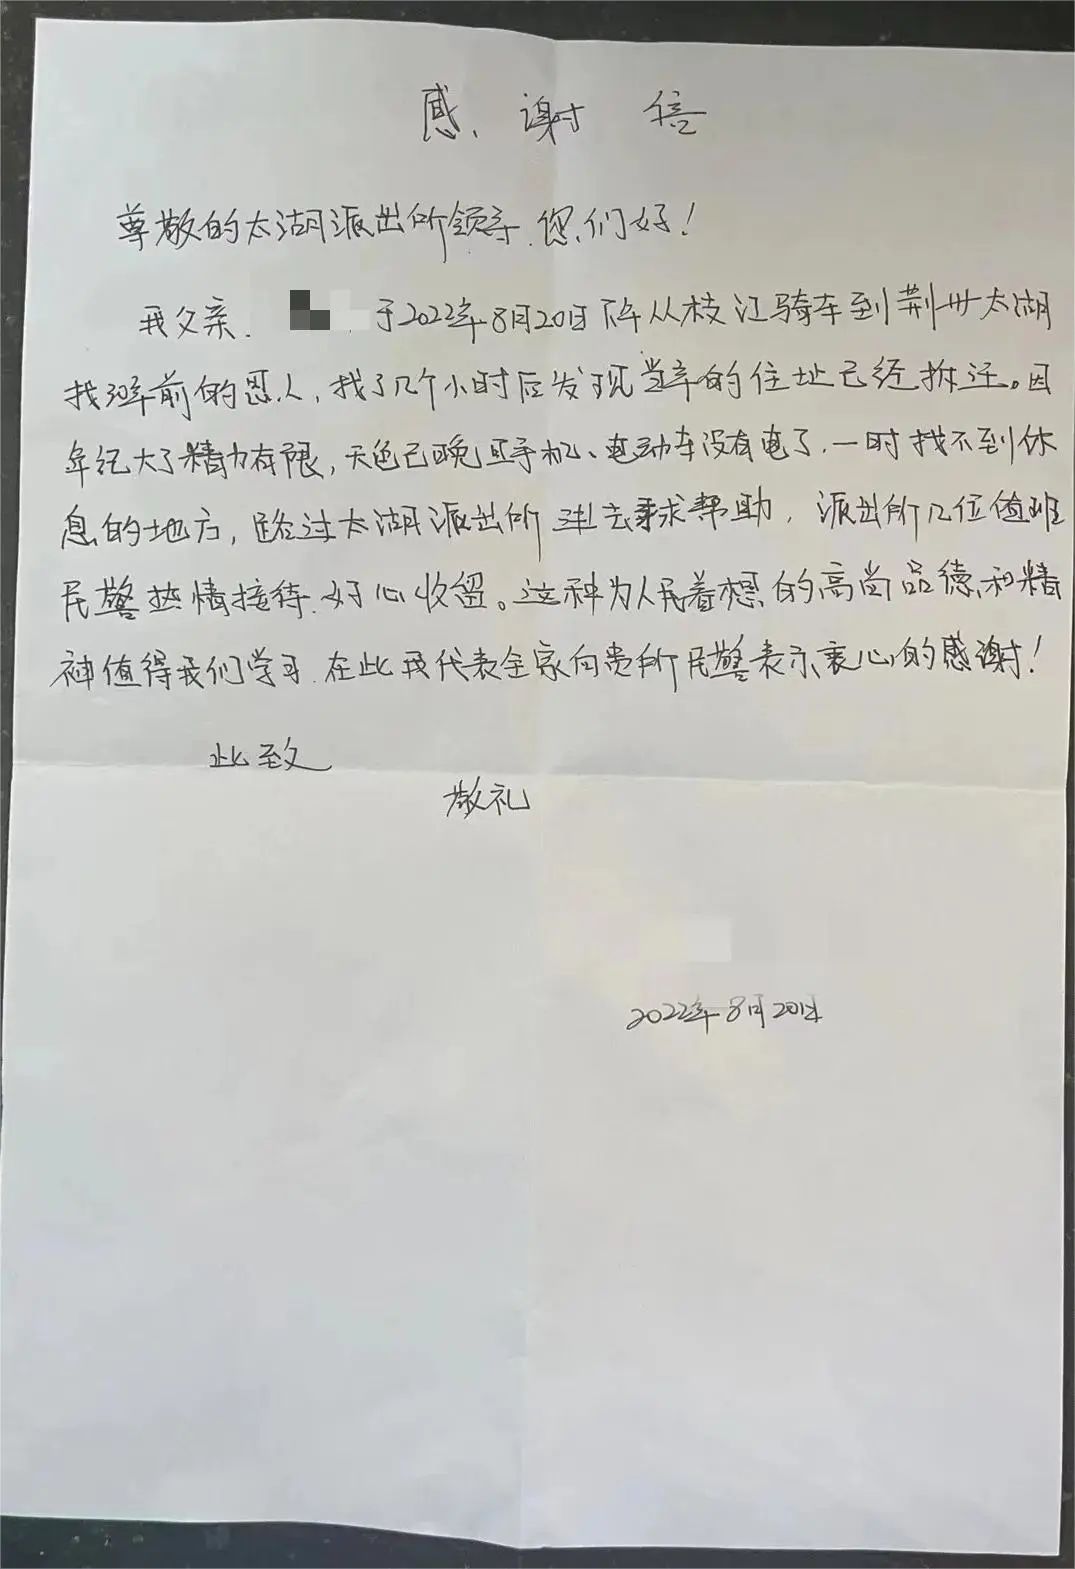 感谢信
尊敬的太湖派出所领导.您们好!
我父亲. 于2022年8月20日下午从枝江骑车到荆州太湖
找30年前的恩人,找了几个小时后发现当年的住址已经拆迁。因
年纪大了精力有限,天色已晚且手机、电动车没有电了.一时找不到休
息的地方,路过太湖派出所进去寻求帮助,派出所几位值班
民警热情接待.好心收留。这种为人民着想的高尚品德和精
神值得我们学习.在此我代表全家向贵所民警表示衷心的感谢!
此致
敬礼
2022年8月20日